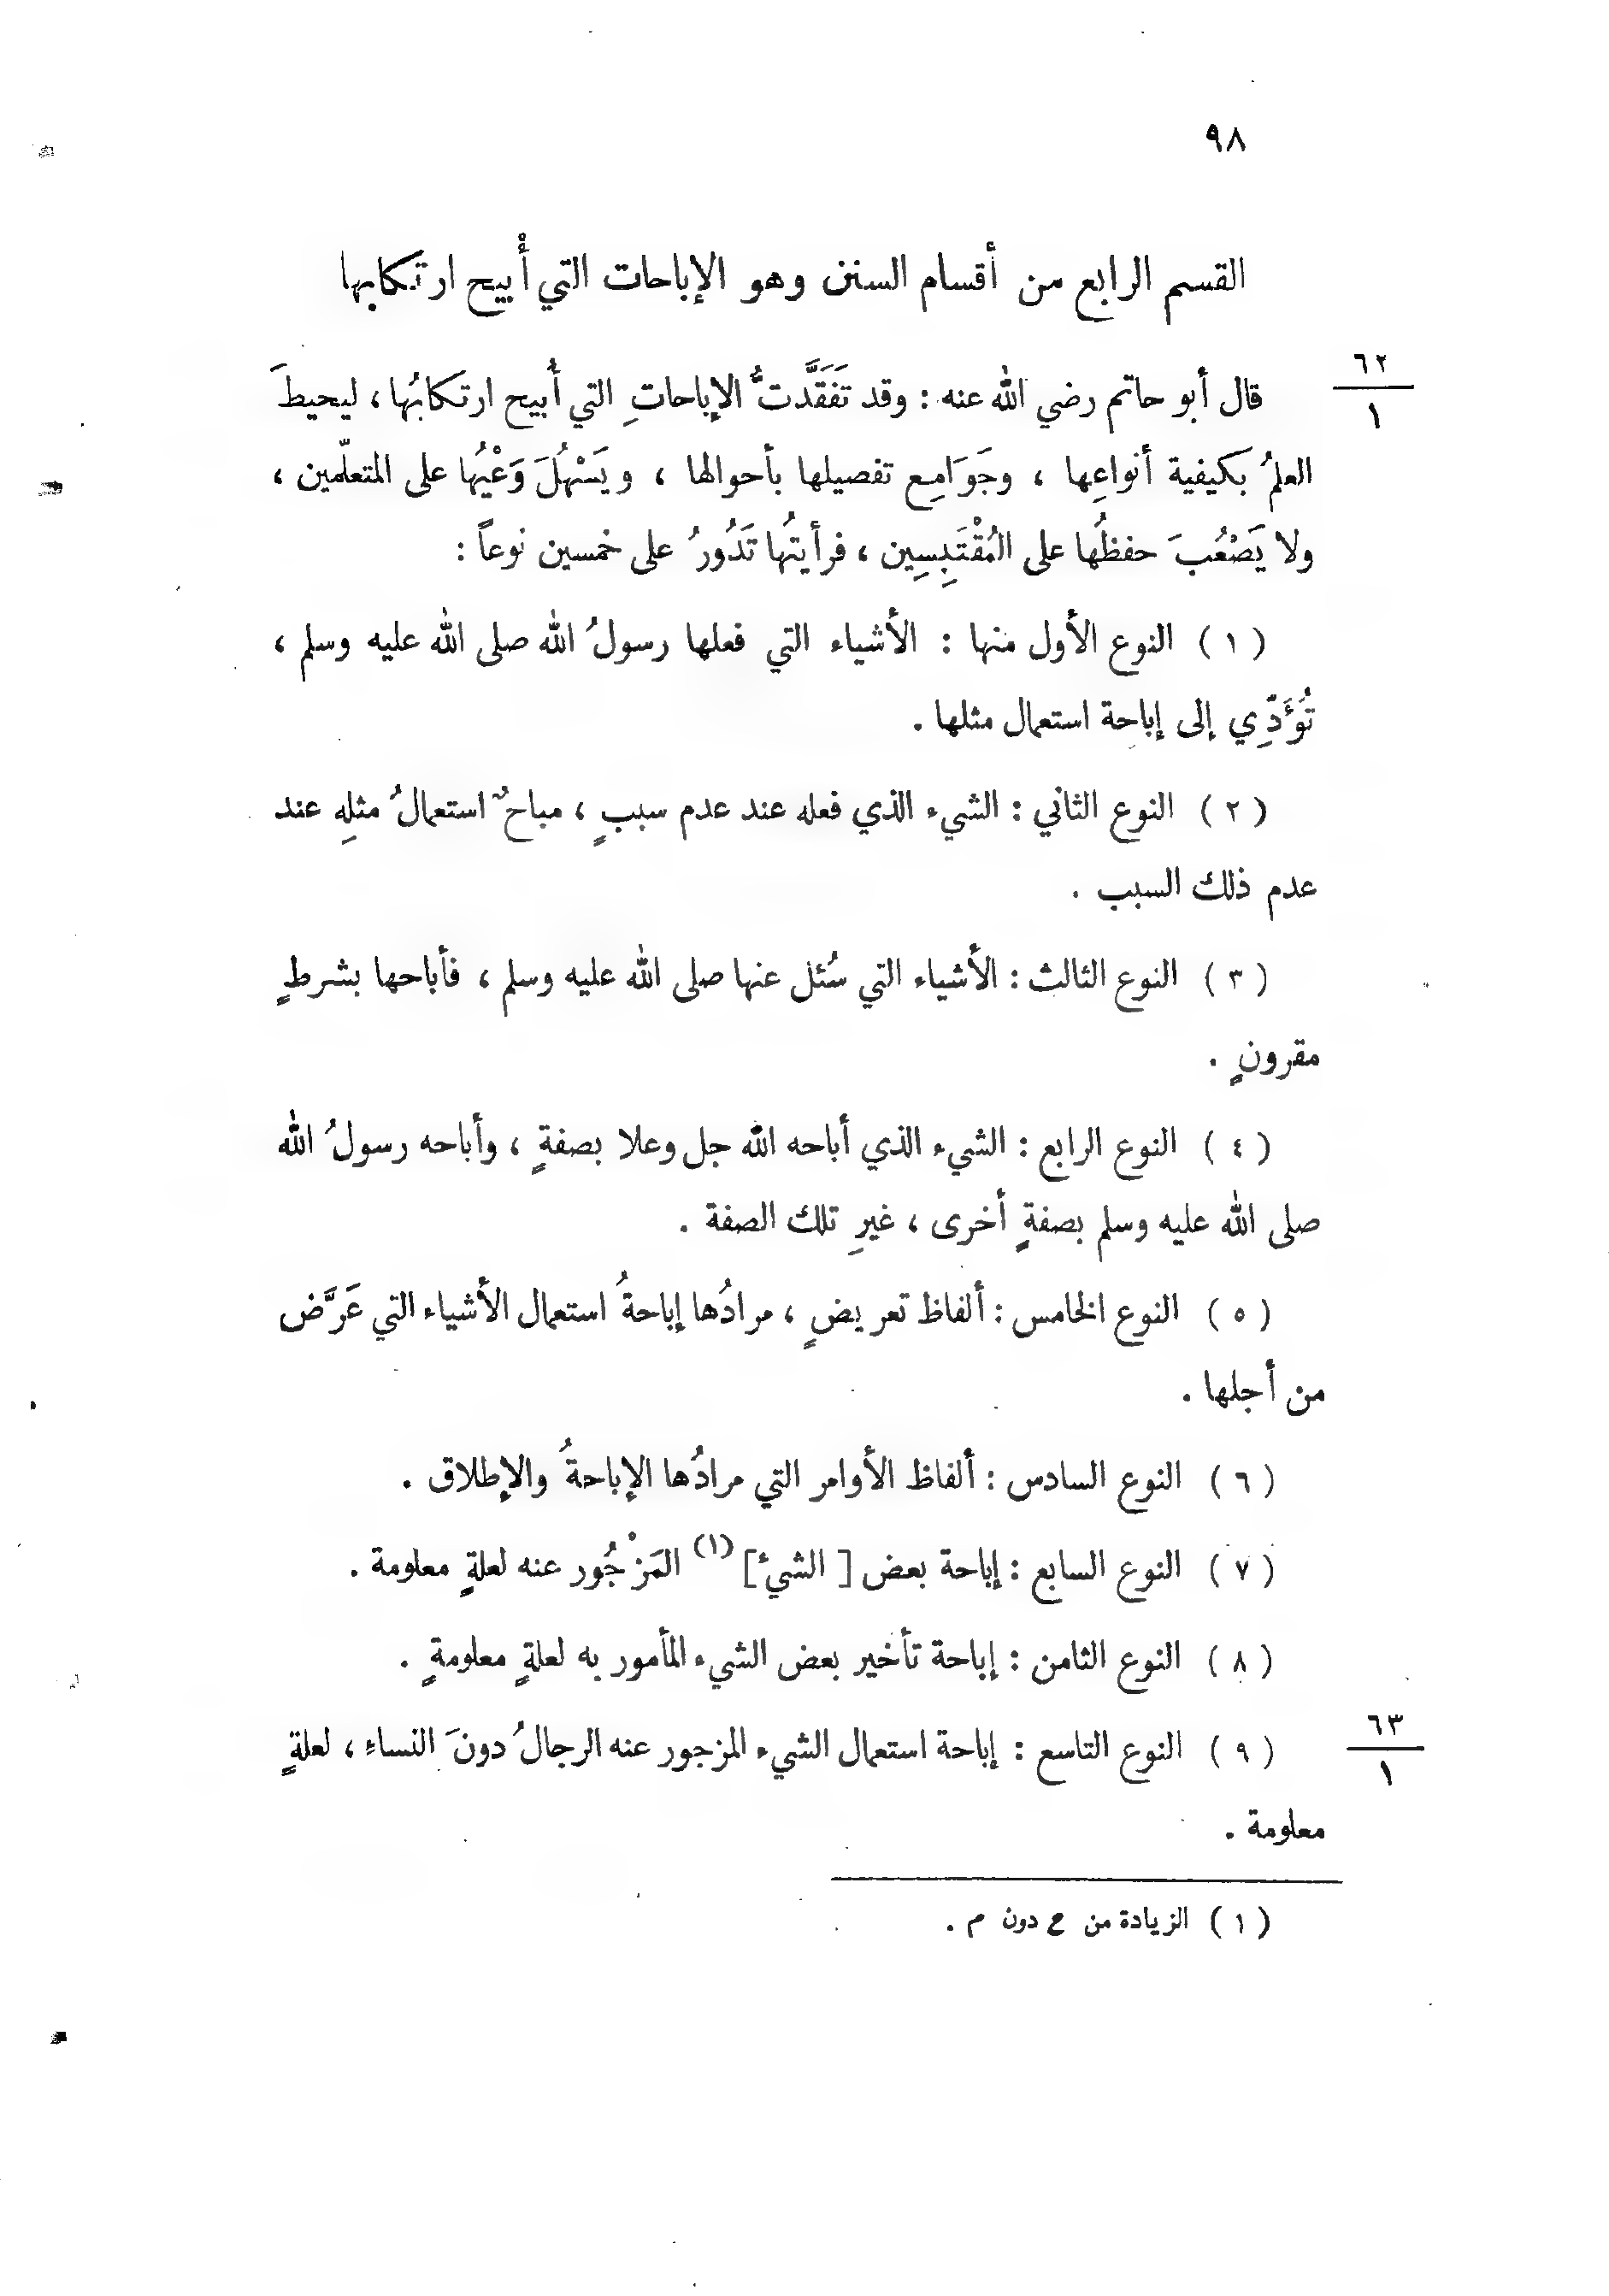 ٩٨
القسم الرابع من أقسام السنن وهو الإباحات التي أُبيح ارتكابها
٦٢
١
قال أبو حاتم رضي الله عنه : وقد تَفَقَّدتُّ الإباحاتِ التي أُبيح ارتكابُها ، ليحيطَ
العلمُ بكيفية أنواعِها ، وجَوَامِع تفصيلها بأحوالها ، ويَسْهُلَ وَعْيُها على المتعلّمين ،
ولا يَصْعُبَ حفظُها على المُقْتَبِسِين ، فرأيتُها تَدُورُ على خمسين نوعاً :
( ١ ) النوع الأول منها : الأشياء التي فعلها رسولُ الله صلى الله عليه وسلم ،
تُؤَدِّي إلى إباحة استعمال مثلها .
( ٢ ) النوع الثاني : الشيء الذي فعله عند عدم سببٍ ، مباحٌ استعمالُ مثلِهِ عند
عدم ذلك السبب .
( ٣ ) النوع الثالث : الأشياء التي سُئل عنها صلى الله عليه وسلم ، فأباحها بشرطٍ
مقرونٍ .
( ٤ ) النوع الرابع : الشيء الذي أباحه الله جل وعلا بصفةٍ ، وأباحه رسولُ الله
صلى الله عليه وسلم بصفةٍ أخرى ، غيرِ تلك الصفة .
( ٥ ) النوع الخامس : ألفاظ تعريضٍ ، مرادُها إباحةُ استعمال الأشياء التي عَرَّض
من أجلها .
( ٦ ) النوع السادس : ألفاظ الأوامر التي مرادُها الإباحةُ والإطلاق .
( ٧ ) النوع السابع : إباحة بعض [ الشئ ] (١) المَزْجُور عنه لعلةٍ معلومة .
( ٨ ) النوع الثامن : إباحة تأخير بعض الشيء المأمور به لعلةٍ معلومةٍ .
٦٣
١
( ٩ ) النوع التاسع : إباحة استعمال الشيء المزجور عنه الرجالُ دونَ النساءِ ، لعلةٍ
معلومة .
( ١ ) الزيادة من ح دون م .